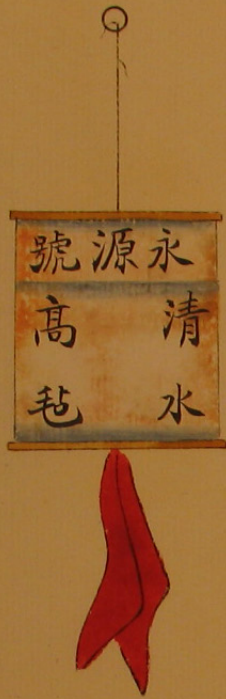 永源號
清水
高毡